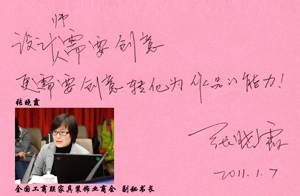 设计师需要创意
更需要创意转化为作品的能力!
张晓霖
2011.1.7
张晓霞
全国工商联家具装饰业商会 副秘书长